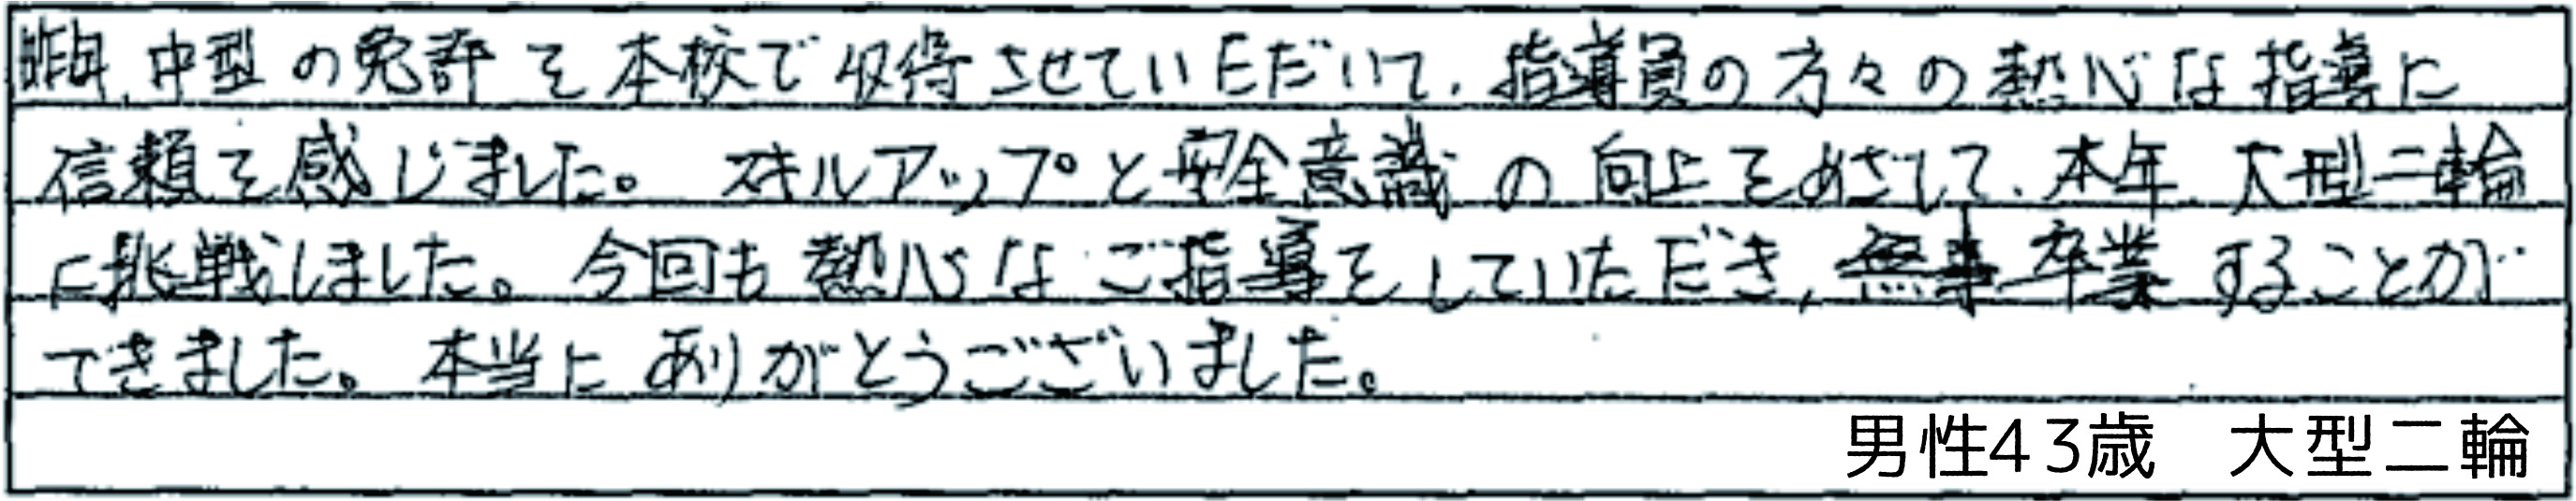 昨年、中型の免許を本校で収得させていただいて、指導員の方々の熱心な指導に
信頼を感じました。スキルアップと安全意識の向上をめざして、本年、大型二輪
に挑戦しました。今回も熱心なご指導をしていただき、無事卒業することが
できました。本当にありがとうございました。
男性43歳 大型二輪